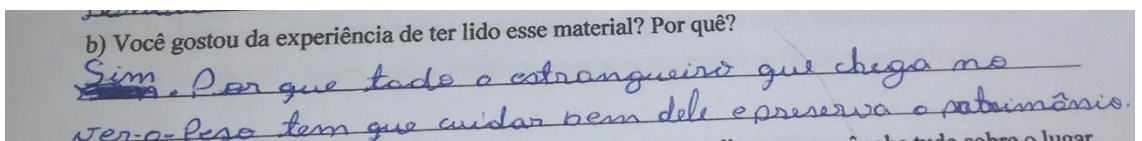 b) Você gostou da experiência de ter lido esse material? Por quê?
Sim. Por que todo o estrangueiro que chega no
Ver-o-Peso tem que cuidar bem dele epreserva o patrimônio.
tudo sobre o lugar